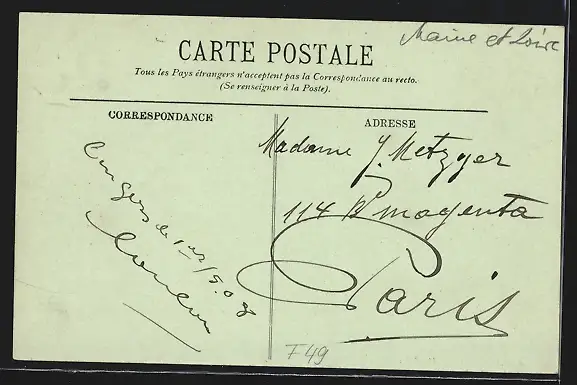 Maine et Loire
CARTE POSTALE
Tous les Pays étrangers n'acceptent pas la Correspondance au recto.
(Se renseigner à la Poste).
CORRESPONDANCE
ADRESSE
Angers le 1er/5.08
Madame J. Metzger
114 Bd magenta
Paris
F49